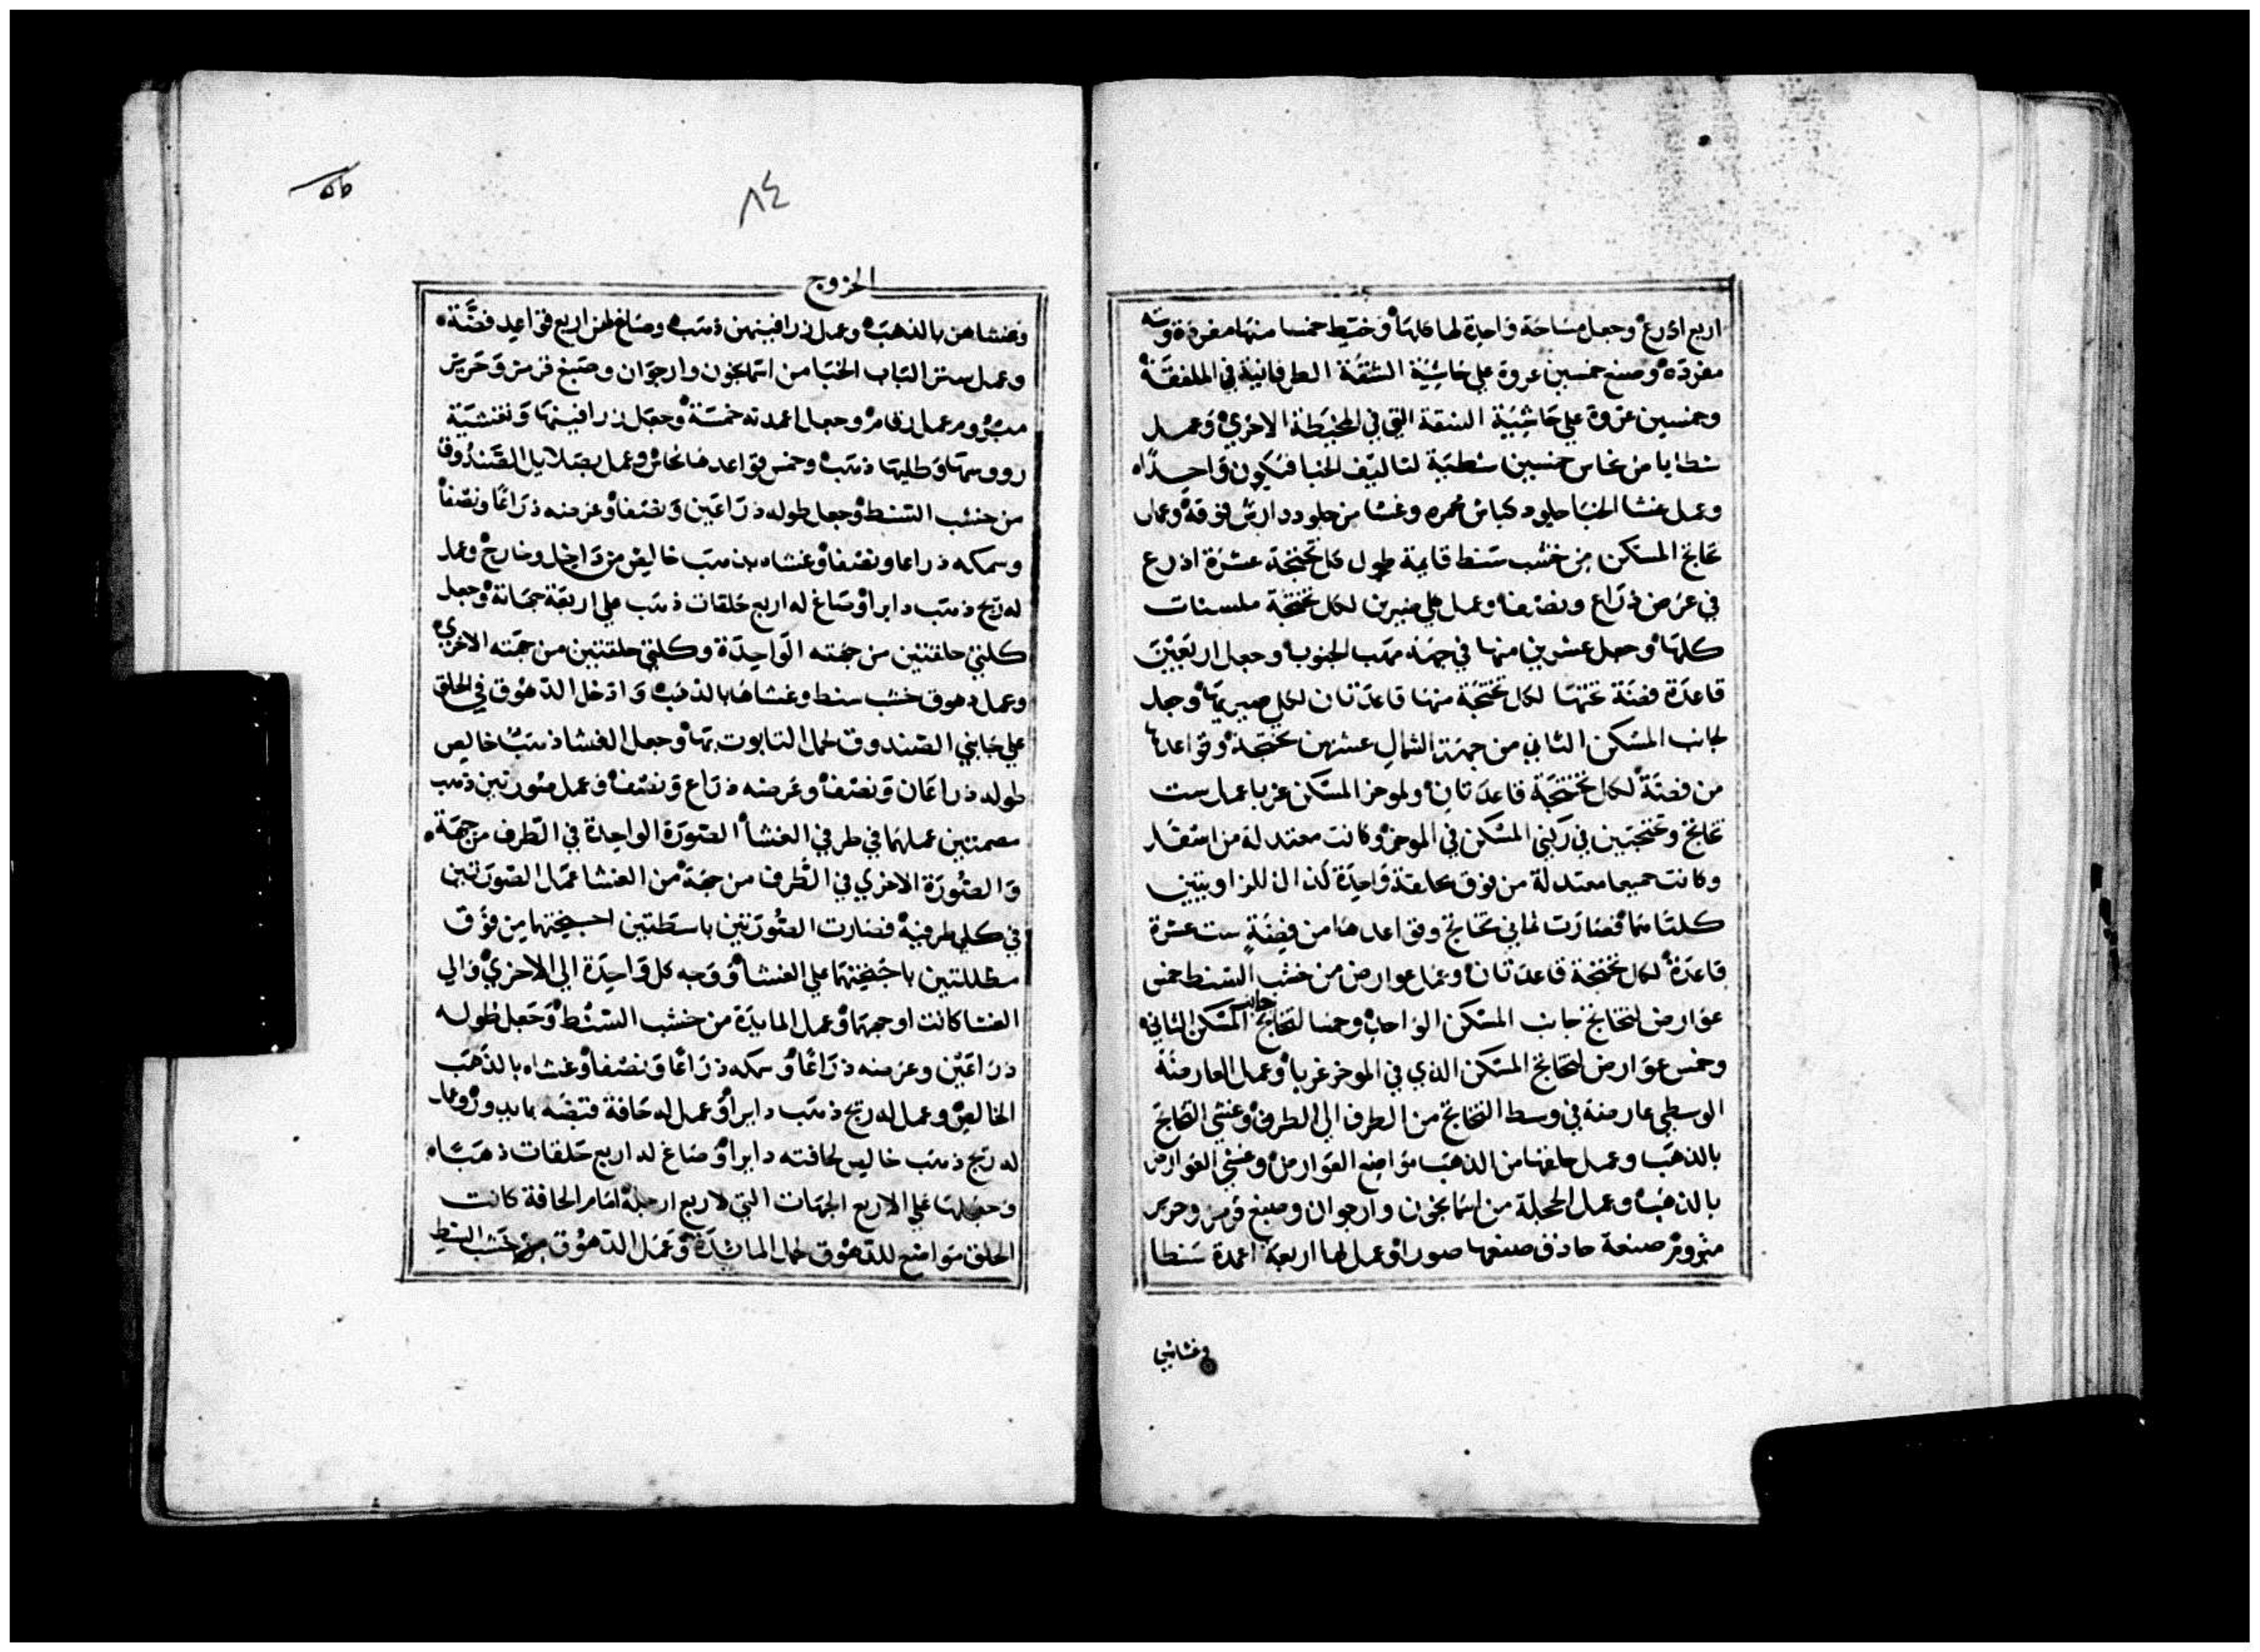 اربع اذرع وجعل مساحة واحدة لها كلها وخيط خمسا منها مفردة وسته
مفردة وصنع خمسين عروة علي حاشية الشقة الطرفانية في الملفقة
وخمسين عروة علي حاشية الشقة التي في المخيطة الاخري وعمل
شظايا من نحاس خمسين شظية لتاليف الخبا فيكون واحدًا
وعمل غشا الخبا جلود كباش محمره وغشا من جلود دارش فوقه وعمل
تخاتج المسكن من خشب سنط قايمة طول كل تختجة عشرة اذرع
في عرض ذراع ونصف وعمل صيرين لكل تختجة ملسنات
كلها وجعل عشرين منها في جهة مهب الجنوب وجعل اربعين
قاعدة فضة تحتها لكل تختجة منها قاعدتان لكل صيريها وجعل
لجانب المسكن الثاني من جهة الشمال عشرين تختجة وقواعدها
من فضة لكل تختجة قاعدتان ولموخر المسكن غربا عمل ست
تخاتج وتختجتين في ركني المسكن في الموخر وكانت معتدلة من اسفل
وكانت جميعا معتدلة من فوق بحلقة واحدة كذا للزاويتين
كلتاهما فصارت ثماني تخاتج وقواعدها من فضة ست عشرة
قاعدة لكل تختجة قاعدتان وعمل عوارض من خشب السنط خمس
عوارض لتخاتج جانب المسكن الواحد وخمسا لتخاتج جانب المسكن الثاني
وخمس عوارض لتخاتج المسكن الذي في الموخر غربا وعمل العارضة
الوسطي عارضة في وسط التخاتج من الطرف الي الطرف وغشي التخاتج
بالذهب وعمل حلقها من الذهب مواضع العوارض وغشي العوارض
بالذهب وعمل الحجلة من اسمانجون وارجوان وصبغ قرمز وحرير
مبروم صنعة حاذق صنعها صورا وعمل لها اربعة اعمدة سنطا
وغشاهن
٨٤
الخروج
وغشاهن بالذهب وعمل زرافينهن ذهب وصاغ لهن اربع قواعد فضة
وعمل ستر الباب الخبا من اسمانجون وارجوان وصبغ قرمز وحرير
مبروم عمل رقام وجعل اعمدته خمسة وجعل زرافينها وتغشية
رووسها وطليها ذهب وخمس قواعدها نحاس وعمل بصلايل الصندوق
من خشب السنط وجعل طوله ذراعين ونصفا وعرضه ذراعًا ونصفا
وسمكه ذراعا ونصفا وغشاه بذهب خالص من داخل وخارج وعمل
له زيج ذهب دايرا وصاغ له اربع حلقات ذهب علي اربعة جهاته وجعل
كلتي حلقتين من جهته الواحدة وكلتي حلقتين من جهته الاخري
وعمل دهوق خشب سنط وغشاها بالذهب وادخل الدهوق في الحلق
علي جانبي الصندوق لحمل التابوت بها وجعل الغشا ذهب خالص
طوله ذراعان ونصف وعرضه ذراع ونصف وعمل صورتين ذهب
مصمتتين عملهما في طرفي الغشا الصورة الواحدة في الطرف من جهة
والصورة الاخري في الطرف من جهة من الغشا عمل الصورتين
في كلي طرفيه فصارت الصورتين باسطتين اجنحتهما من فوق
مظللتين باجنحتهما علي الغشا ووجه كل واحدة الي الاخري والي
الغشا كانت اوجهها وعمل المايدة من خشب السنط وجعل طوله
ذراعين وعرضه ذراعًا وسمكه ذراعًا ونصفا وغشاه بالذهب
الخالص وعمل له زيج ذهب دايرا وعمل له حافة قبضه بما يدور وعمل
له زيج ذهب خالص لحافته دايرا وصاغ له اربع حلقات ذهبًا
وجعلها علي الاربع الجهات التي لاربع ارجله امام الحافة كانت
الحلق مواضع للدهوق لحمل المائدة وعمل الدهوق من خشب السنط